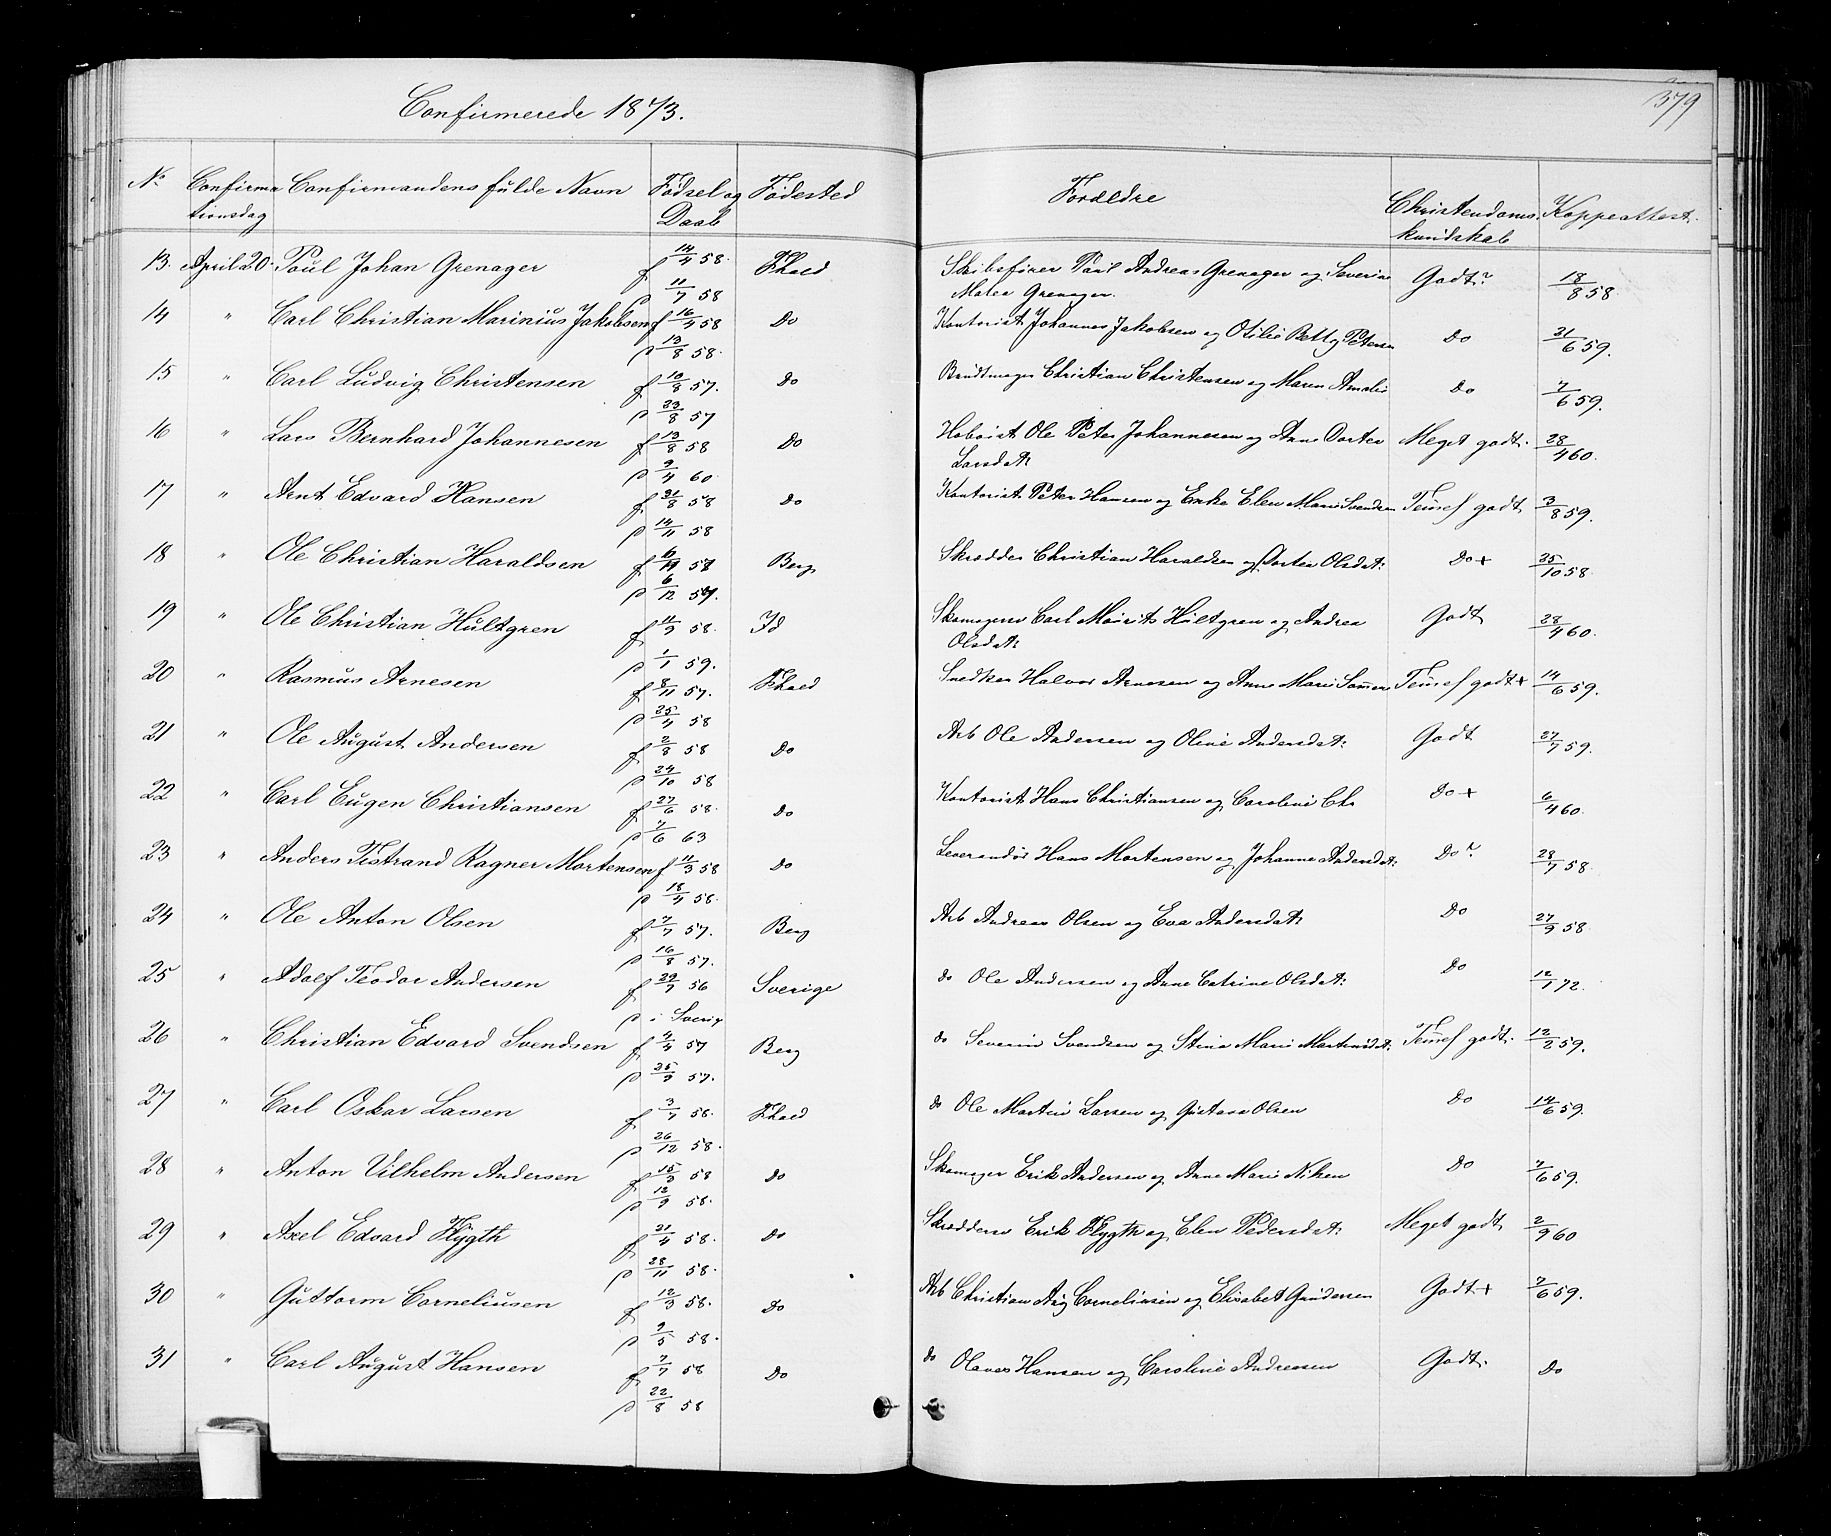 Confirmerede 1873.
379
No Confirmationsdag Confirmandens fulde Navn Fødsel og Daab Fødested Forældre Christendomskundskab Koppeattest.
13. April 20. Paul Johan Grenager f 14/4 58. p 11/7 58 Fhald Skibsfører Paul Andreas Grenager og Severine Godt? 18/8 58.
Malea Grenager.
14 " Carl Christian Marinius Jakobsen f 16/4 58 p 13/8 58. Do Kontorist Johannes Jakobsen og Otilie Betty Petersen Do 21/6 59.
15 " Carl Ludvig Christensen f 10/8 57. p 23/8 57 Do Christian Christensen og Maren Amalie Do 7/6 59.
16 " Lars Bernhard Johannesen f 13/8 58 p 9/4 60. Do Hoboist Ole Peter Johannesen og Anne Dortea Meget godt. 28/4 60.
Larsdat:
17 " Arnt Edvard Hansen f 21/8 58 p 14/11 58 Do Kontorist Peter Hansen og Enke Elen Marie Svendsen Temel godt 3/8 59.
18 " Ole Christian Haraldsen f 6/11 57 p 6/12 57. Berg Skrædder Christian Haraldsen og Dortea Olsdat: Do + 25/10 58.
19 " Ole Christian Hultgren f 11/9 58. p 1/1 59. Id Skomagersv Carl Maurits Hultgren og Andrea Godt 28/4 60.
Olsdat:
20 " Rasmus Arnesen f 8/11 57. p 25/4 58 Fhald Snedker Halvor Arnesen og Anne Marie Temel godt + 14/6 59.
21 " Ole August Andersen f 2/8 58 p 24/10 58 Do Arb Ole Andersen og Oline Andersdat: Godt 27/7 59.
22 " Carl Eugen Christiansen f 27/6 58. p 7/6 63 Do Kontorist Hans Christiansen og Caroline Chr Do + 6/4 60.
23 " Anders Testrand Ragner Mortensen f 11/3 58 p 18/4 58. Do Leverandør Hans Mortensen og Johanne Andersdat: Do? 28/7 58.
24 " Ole Anton Olsen f 7/7 57. p 16/8 57. Berg Arb Andreas Olsen og Eva Andersdat: Do 27/9 58
25 " Adolf Teodor Andersen f 29/7 56 p i Sverig Sverige do Ole Andersen og Anne Catrine Olsdat: Do 12/1 72.
26 " Christian Edvard Svendsen f 4/4 57 p 25/9 57. Berg do Severin Svendsen og Stina Marie Martinsdat: Temel godt. 12/2 59.
27 " Carl Oskar Larsen f 3/7 58. p 26/12 58. Fhald do Ole Martin Larsen og Gustava Olsen Do 14/6 59.
28 " Anton Vilhelm Andersen f 15/3 58 p 12/9 58. Do Skomager Erik Andersen og Anne Marie Nilsen Do 7/6 59.
29 " Axel Edvard Flygth f 21/4 58. p 28/11 58. Do Skræddersv Erik Flygth og Elen Pedersdat: Meget godt 2/9 60
30 " Guttorm Corneliusen f 12/3 58. p 9/5 58. Do Arb Christian Aug Corneliusen og Elisabet Gundersen Godt + 7/6 59.
31 " Carl August Hansen f 7/7 58 p 22/8 58 Do do Olaves Hansen og Caroline Andresen Godt. Do